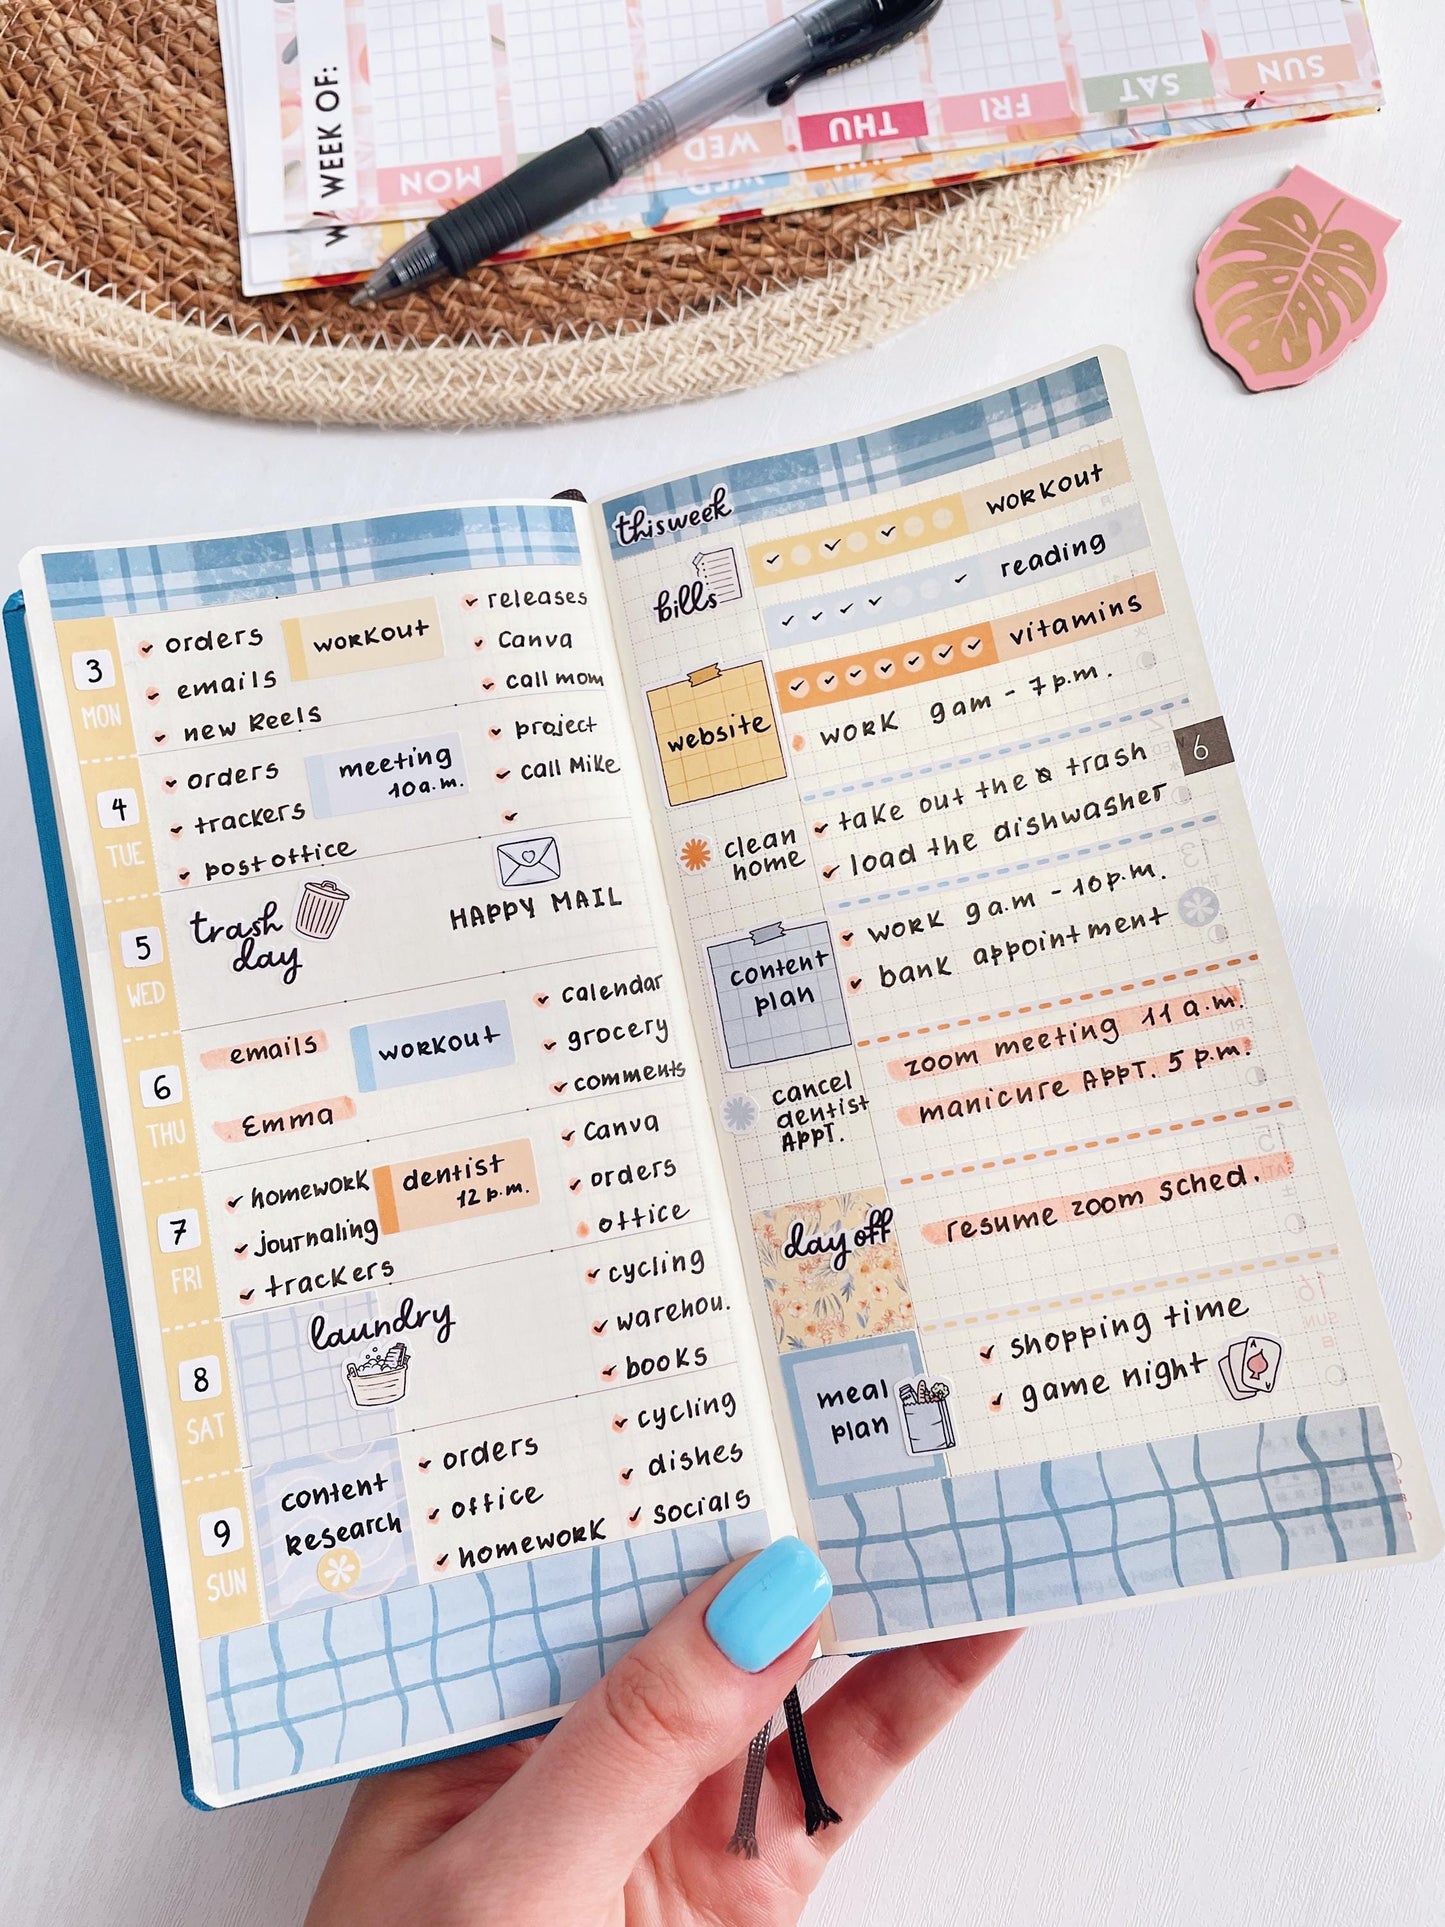 WEEK OF:
W
MON
WED
THU
FRI
SAT
SUN
WED
THU
PILOT G-2
3
MON
orders
emails
new Reels
workout
releases
Canva
call mom
4
TUE
orders
trackers
post office
meeting
10 a.m.
project
call Mike
5
WED
trash
day
HAPPY MAIL
6
THU
emails
Emma
workout
calendar
grocery
comments
7
FRI
homework
journaling
trackers
dentist
12 p.m.
Canva
orders
office
8
SAT
laundry
cycling
warehou.
books
9
SUN
content
research
orders
office
homework
cycling
dishes
socials
this week
workout
reading
vitamins
bills
work 9am - 7p.m.
website
take out the trash
load the dishwasher
6
clean
home
work 9a.m - 10p.m.
bank appointment
content
plan
zoom meeting 11 a.m.
manicure APPT. 5 p.m.
cancel
dentist
APPT.
resume zoom sched.
day off
shopping time
game night
A
A
meal
plan